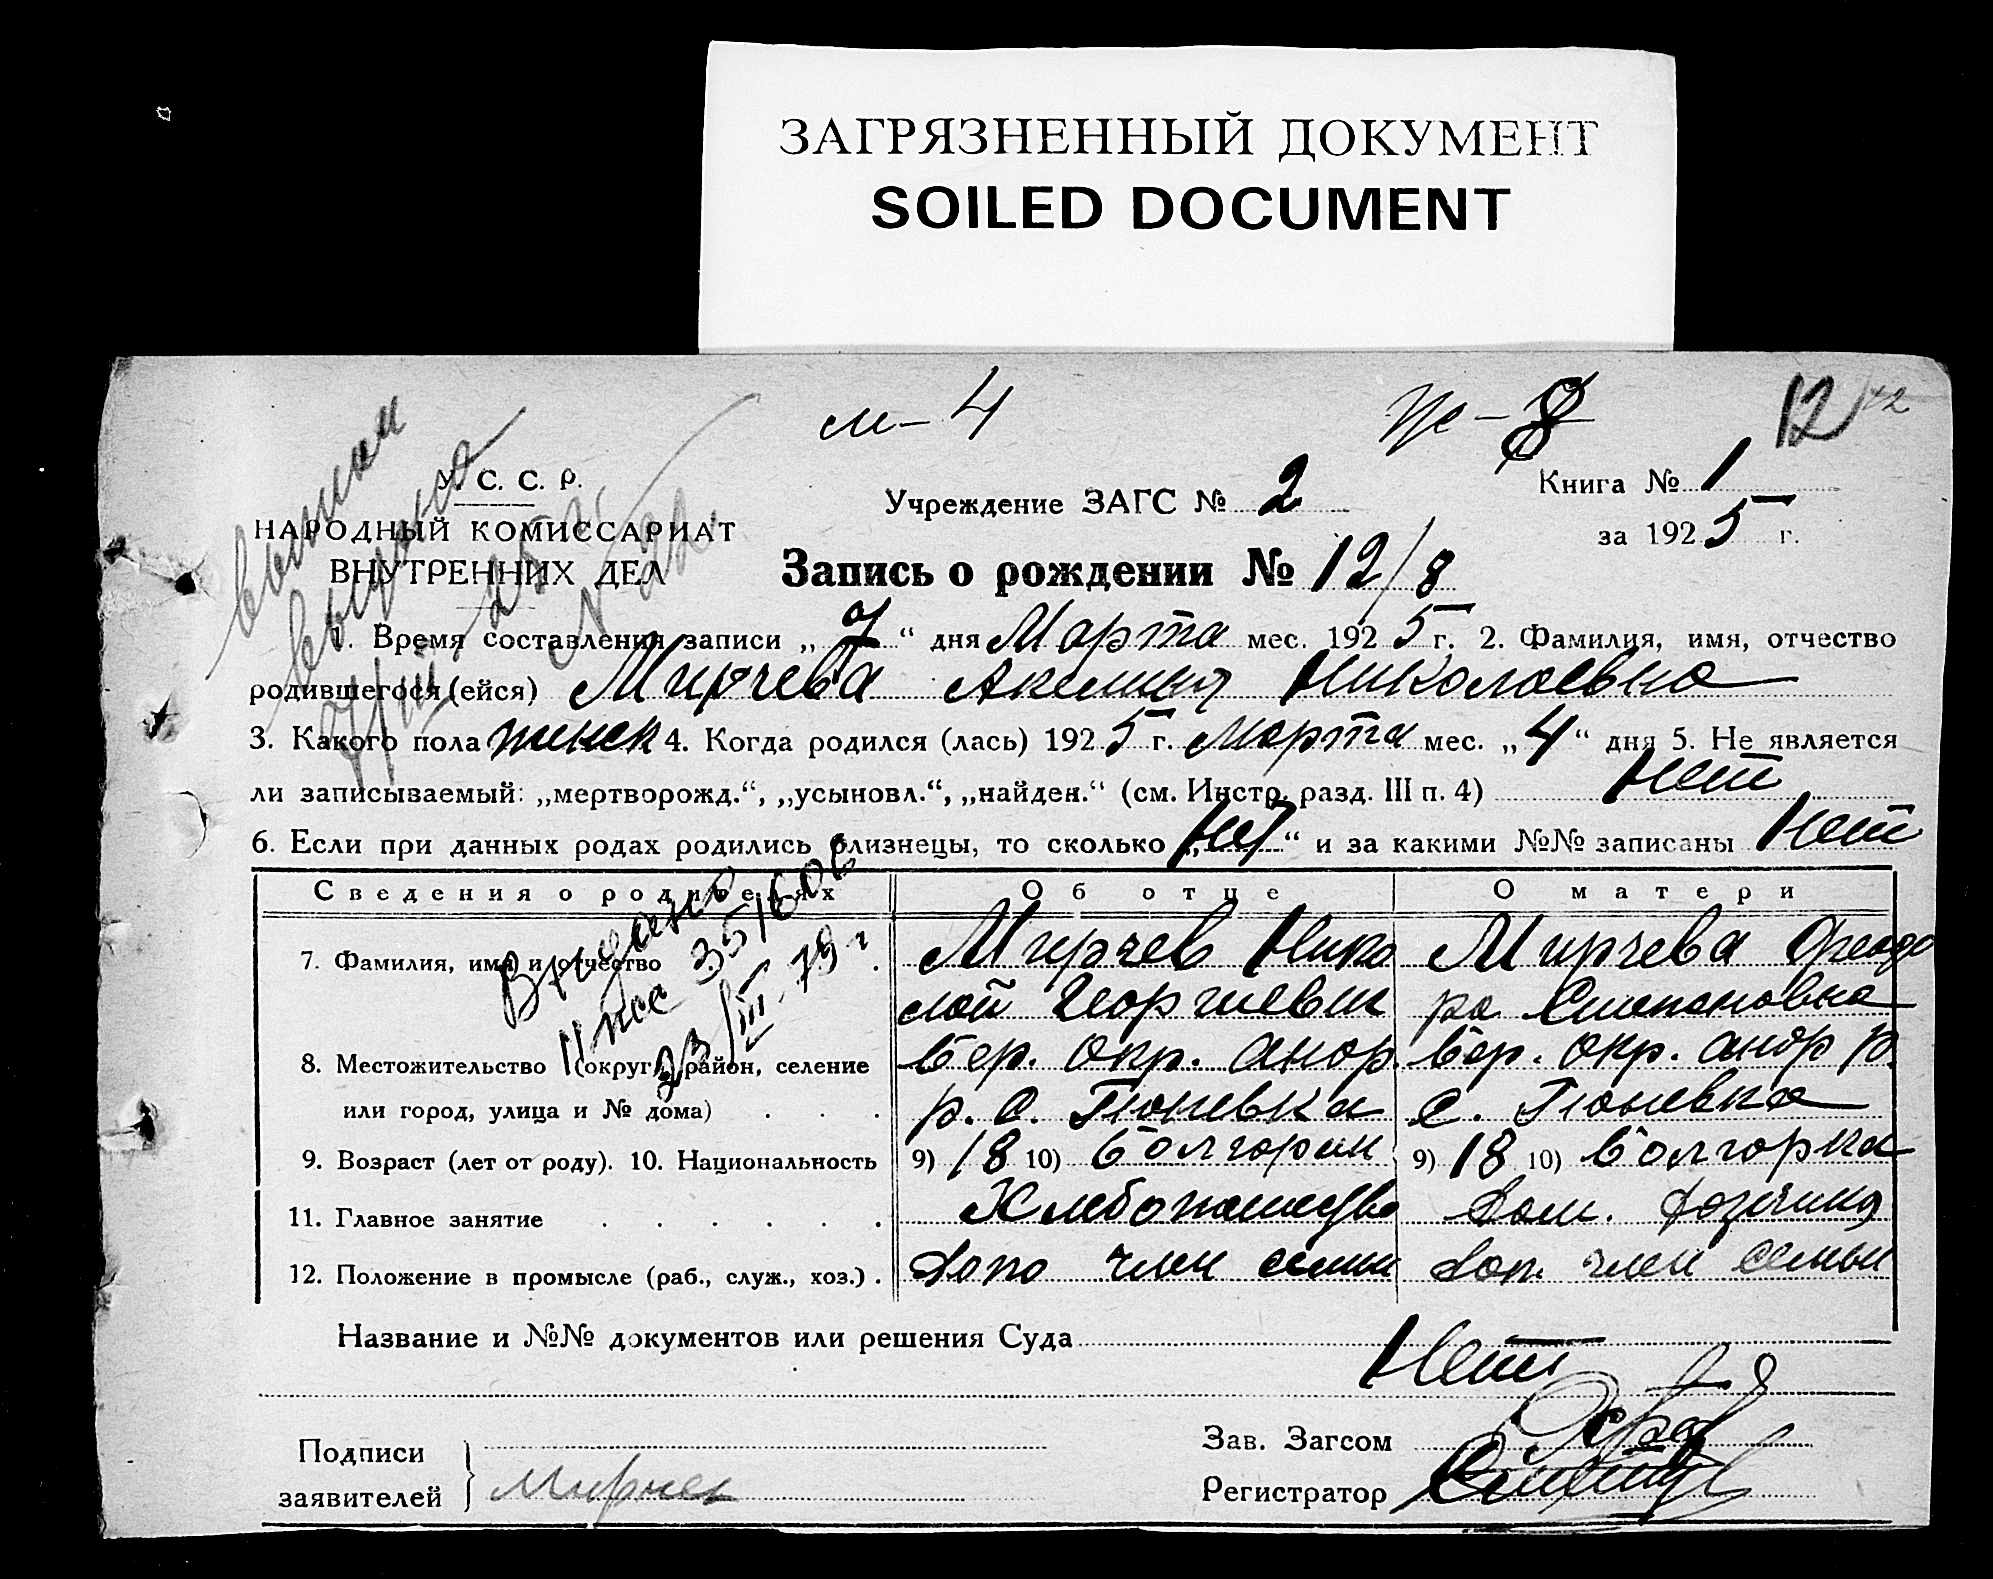 ЗАГРЯЗНЕННЫЙ ДОКУМЕНТ
SOILED DOCUMENT
м-4
ж-8
12
42
У. С. С. Р.
НАРОДНЫЙ КОМИССАРИАТ
ВНУТРЕННИХ ДЕЛ
Учреждение ЗАГС № 2
Книга № 1
за 1925 г.
Запись о рождении № 12/8
1. Время составления записи „7“ дня Марта мес. 1925 г. 2. Фамилия, имя, отчество
родившегося (ейся) Мирчева Акелина Николаевна
3. Какого пола женск 4. Когда родился (лась) 1925 г. Марта мес. „4“ дня 5. Не является
ли записываемый: „мертворожд.“, „усыновл.“, „найден.“ (см. Инстр. разд. III п. 4) Нет
6. Если при данных родах родились близнецы, то сколько „Нет“ и за какими №№ записаны Нет
Сведения о родителях Об отце О матери
7. Фамилия, имя и отчество Мирчев Нико Мирчева Феодо
лай Георгиевич ра Степановна
8. Местожительство (округ, район, селение Бер. Окр. Андр. Бер. Окр. Андр р.
или город, улица и № дома) р. С. Гюневка с. Гюневка
9. Возраст (лет от роду). 10. Национальность 9) 18 10) болгарин 9) 18 10) болгарка
11. Главное занятие Хлебопашество Дом. хозяйка
12. Положение в промысле (раб., служ., хоз.) . член семьи член семьи
Выдано
23/III-79 г
Название и №№ документов или решения Суда Нет
Подписи
заявителей Мирчев
Зав. Загсом
Регистратор